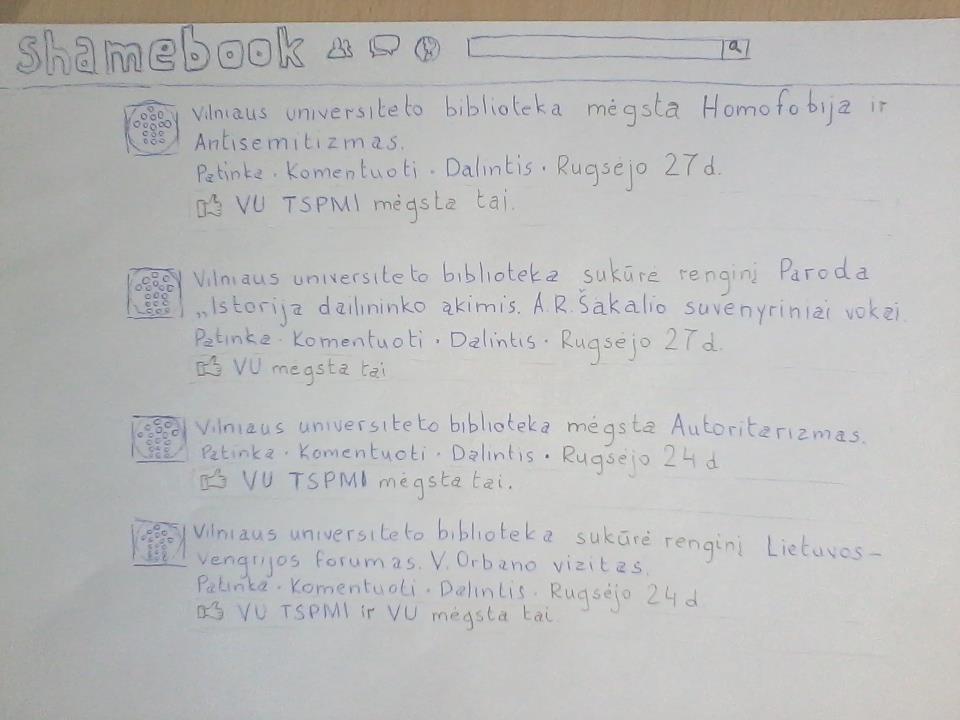 shamebook
Vilniaus universiteto biblioteka mėgsta Homofobija ir
Antisemitizmas.
Patinka · Komentuoti · Dalintis · Rugsėjo 27 d.
VU TSPMI mėgsta tai.
Vilniaus universiteto biblioteka sukūrė renginį Paroda
„Istorija dailininko akimis. A.R. Šakalio suvenyriniai vokai.
Patinka · Komentuoti · Dalintis · Rugsėjo 27 d.
VU mėgsta tai
Vilniaus universiteto biblioteka mėgsta Autoritarizmas.
Patinka · Komentuoti · Dalintis · Rugsėjo 24 d
VU TSPMI mėgsta tai.
Vilniaus universiteto biblioteka sukūrė renginį Lietuvos-
vengrijos forumas. V. Orbano vizitas.
Patinka · Komentuoti · Dalintis · Rugsėjo 24 d
VU TSPMI ir VU mėgsta tai.